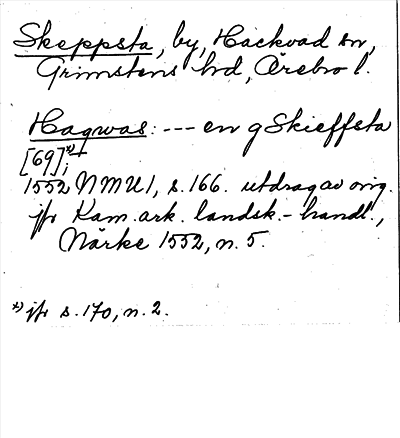 Skeppsta, by, Hackvad sn,
Grimstens hd, Örebro l.
Hagwas: --- en g Skieffsta
[69]*)+;
1552 NMU 1, s. 166. utdrag av orig.
jfr Kam. ark. landsk.-handl.,
Närke 1552, n. 5.
*) jfr s. 170, n. 2.